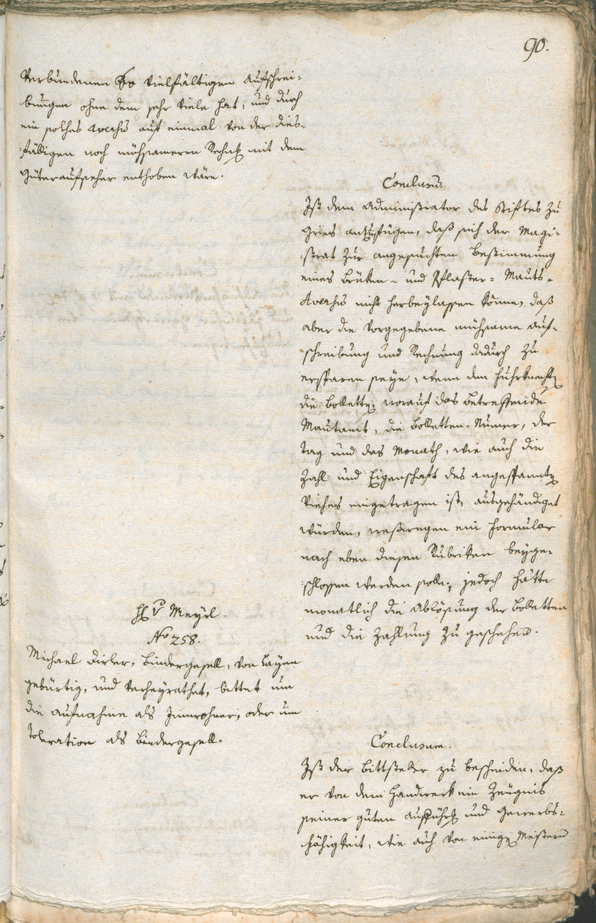 90.
verbundenen so vielfältigen Aufschrei-
bungen ohne dem sehr viele hat, und durch
ein solches Aversus auf einmal von der dies-
fälligen noch mühsameren Rechnung mit dem
Güteraufseher enthoben wäre.
Conclusum.
Ist dem Administrator des Stiftes zu
Gries anzufügen, daß sich der Magi-
strat zur angesuchten Bestimmung
eines Brüken- und Pflaster-Mauts-
Aversus nicht herbeylassen könne, daß
aber die vorgegebene mühsame Auf-
schreibung und Rechnung dadurch zu
ersparen seye, wenn den Fuhrknechten
die Bolletten, worauf das betreffende
Mautamt, die Bolletten-Numer, der
Tag und das Monath, wie auch die
Zahl und Eigenschaft des angespannten
Viehes eingetragen ist, ausgehändiget
würden, weßwegen ein Formular
nach eben diesen Rubriken beyge-
schlossen werden solle; jedoch hätte
monatlich die Ablösung der Bolletten
und die Zahlung zu geschehen.
H. v. Meyrl
No 258.
Michael Dirler, Bindergesell, von Layen
gebürtig, und verheyrathet, bittet um
die Aufnahme als Innwohner, oder um
Toleration als Bindergesell.
Conclusum.
Ist der Bittsteller zu bescheiden, daß
er von dem Handwerk ein Zeugniß
seiner guten Aufführung und Gewerbs-
fähigkeit, wie auch von einigen Meistern